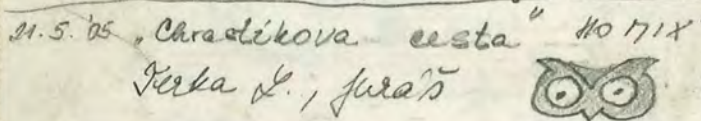 21.5.'05 „Chradikova cesta" HO MIX
Terka L., Juráš